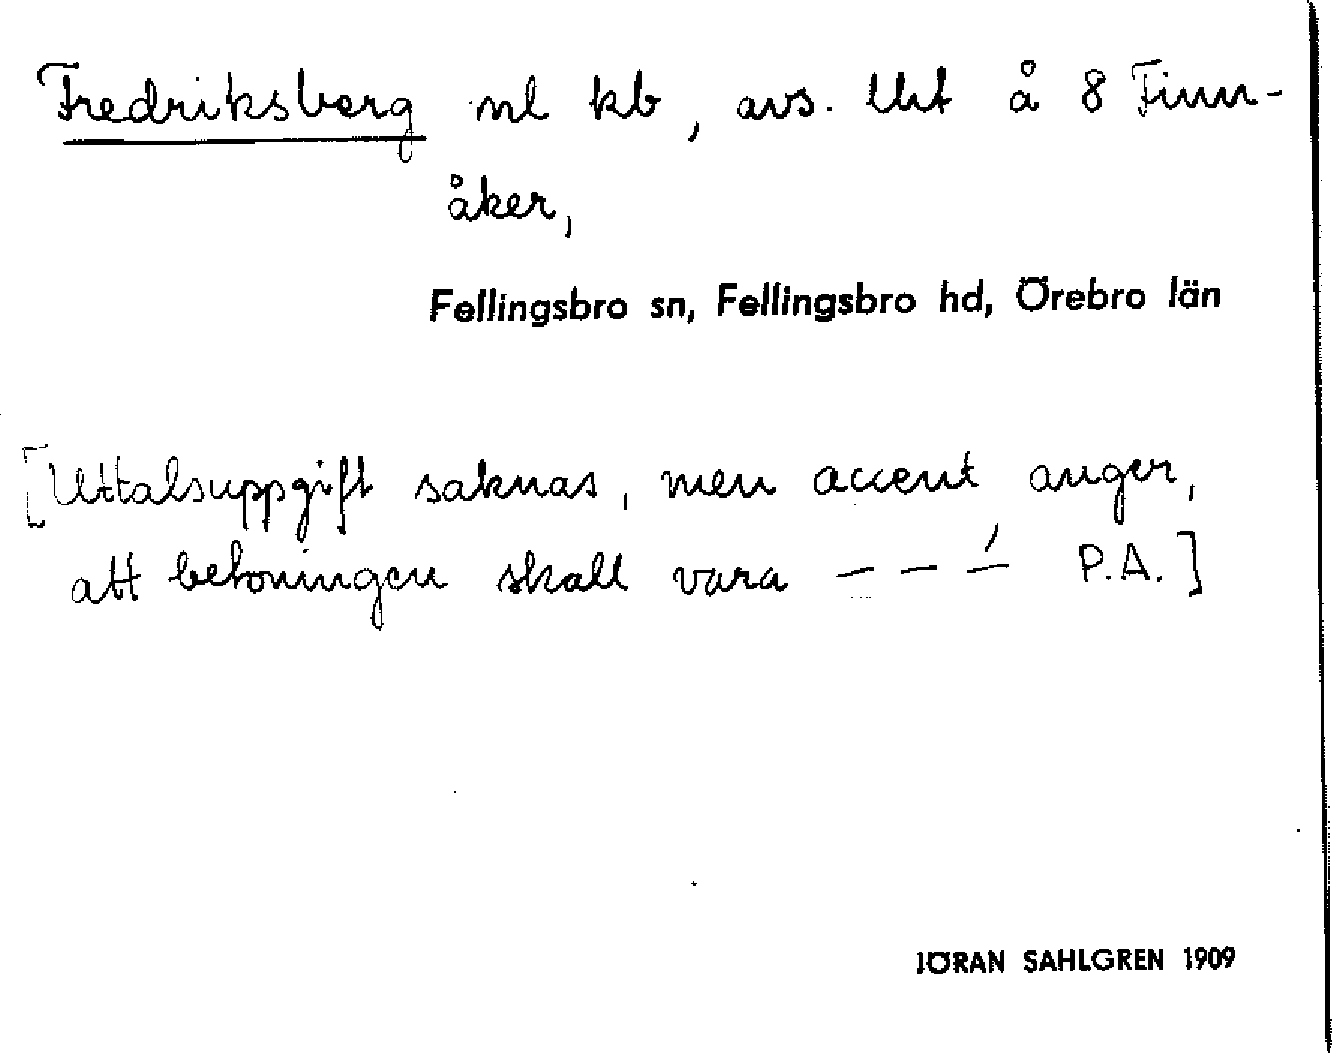 Fredriksberg ml kb, avs. Uht å 8 Finn-
åker,
Fellingsbro sn, Fellingsbro hd, Örebro län
[Uttalsuppgift saknas, men accent anger,
att betoningen skall vara – – –́ P.A.]
JÖRAN SAHLGREN 1909